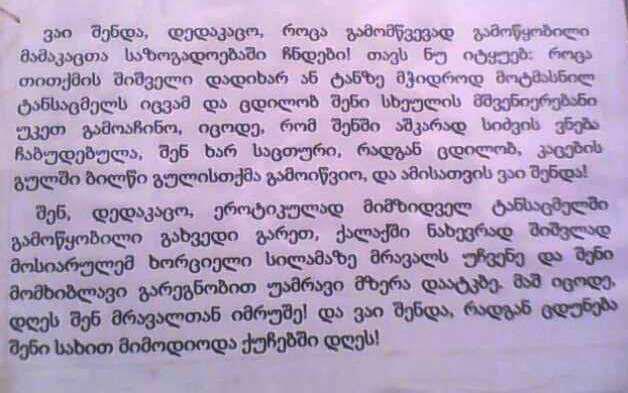 ვაი შენდა, დედაკაცო, როცა გამომწვევად გამოწყობილი
მამაკაცთა საზოგადოებაში ჩნდები! თავს ნუ იტყუებ: როცა
თითქმის შიშველი დადიხარ ან ტანზე მჭიდროდ მოტმასნილ
ტანსაცმელს იცვამ და ცდილობ შენი სხეულის მშვენიერებანი
უკეთ გამოაჩინო, იცოდე, რომ შენში აშკარად სიძვის ვნება
ჩაბუდებულა, შენ ხარ საცთური, რადგან ცდილობ, კაცების
გულში ბილწი გულისთქმა გამოიწვიო, და ამისათვის ვაი შენდა!
შენ, დედაკაცო, ეროტიკულად მიმზიდველ ტანსაცმელში
გამოწყობილი გახვედი გარეთ, ქალაქში ნახევრად შიშვლად
მოსიარულემ ხორციელი სილამაზე მრავალს უჩვენე და შენი
მომხიბლავი გარეგნობით უამრავი მზერა დაატკბე, მაშ იცოდე,
დღეს შენ მრავალთან იმრუშე! და ვაი შენდა, რადგან ცდუნება
შენი სახით მიმოდიოდა ქუჩებში დღეს!